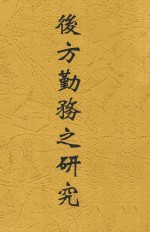 後方勤務之研究